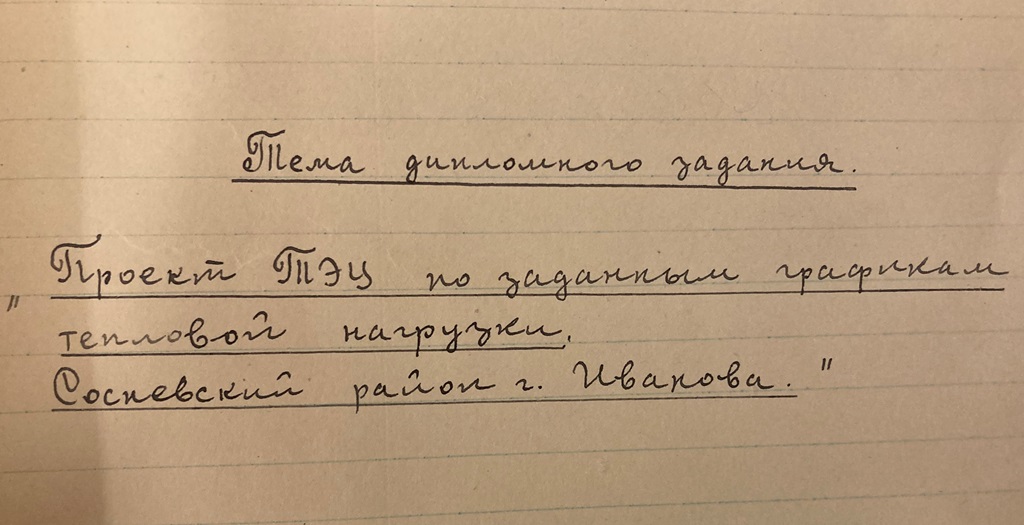 Тема дипломного задания.
„Проект ТЭЦ по заданным графикам
тепловой нагрузки,
Сосневский район г. Иванова."